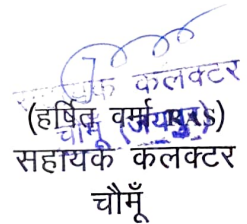 सहायक कलक्टर
चौमूँ (जयपुर)
(हर्षित वर्मा RAS)
सहायक कलक्टर
चौमूँ